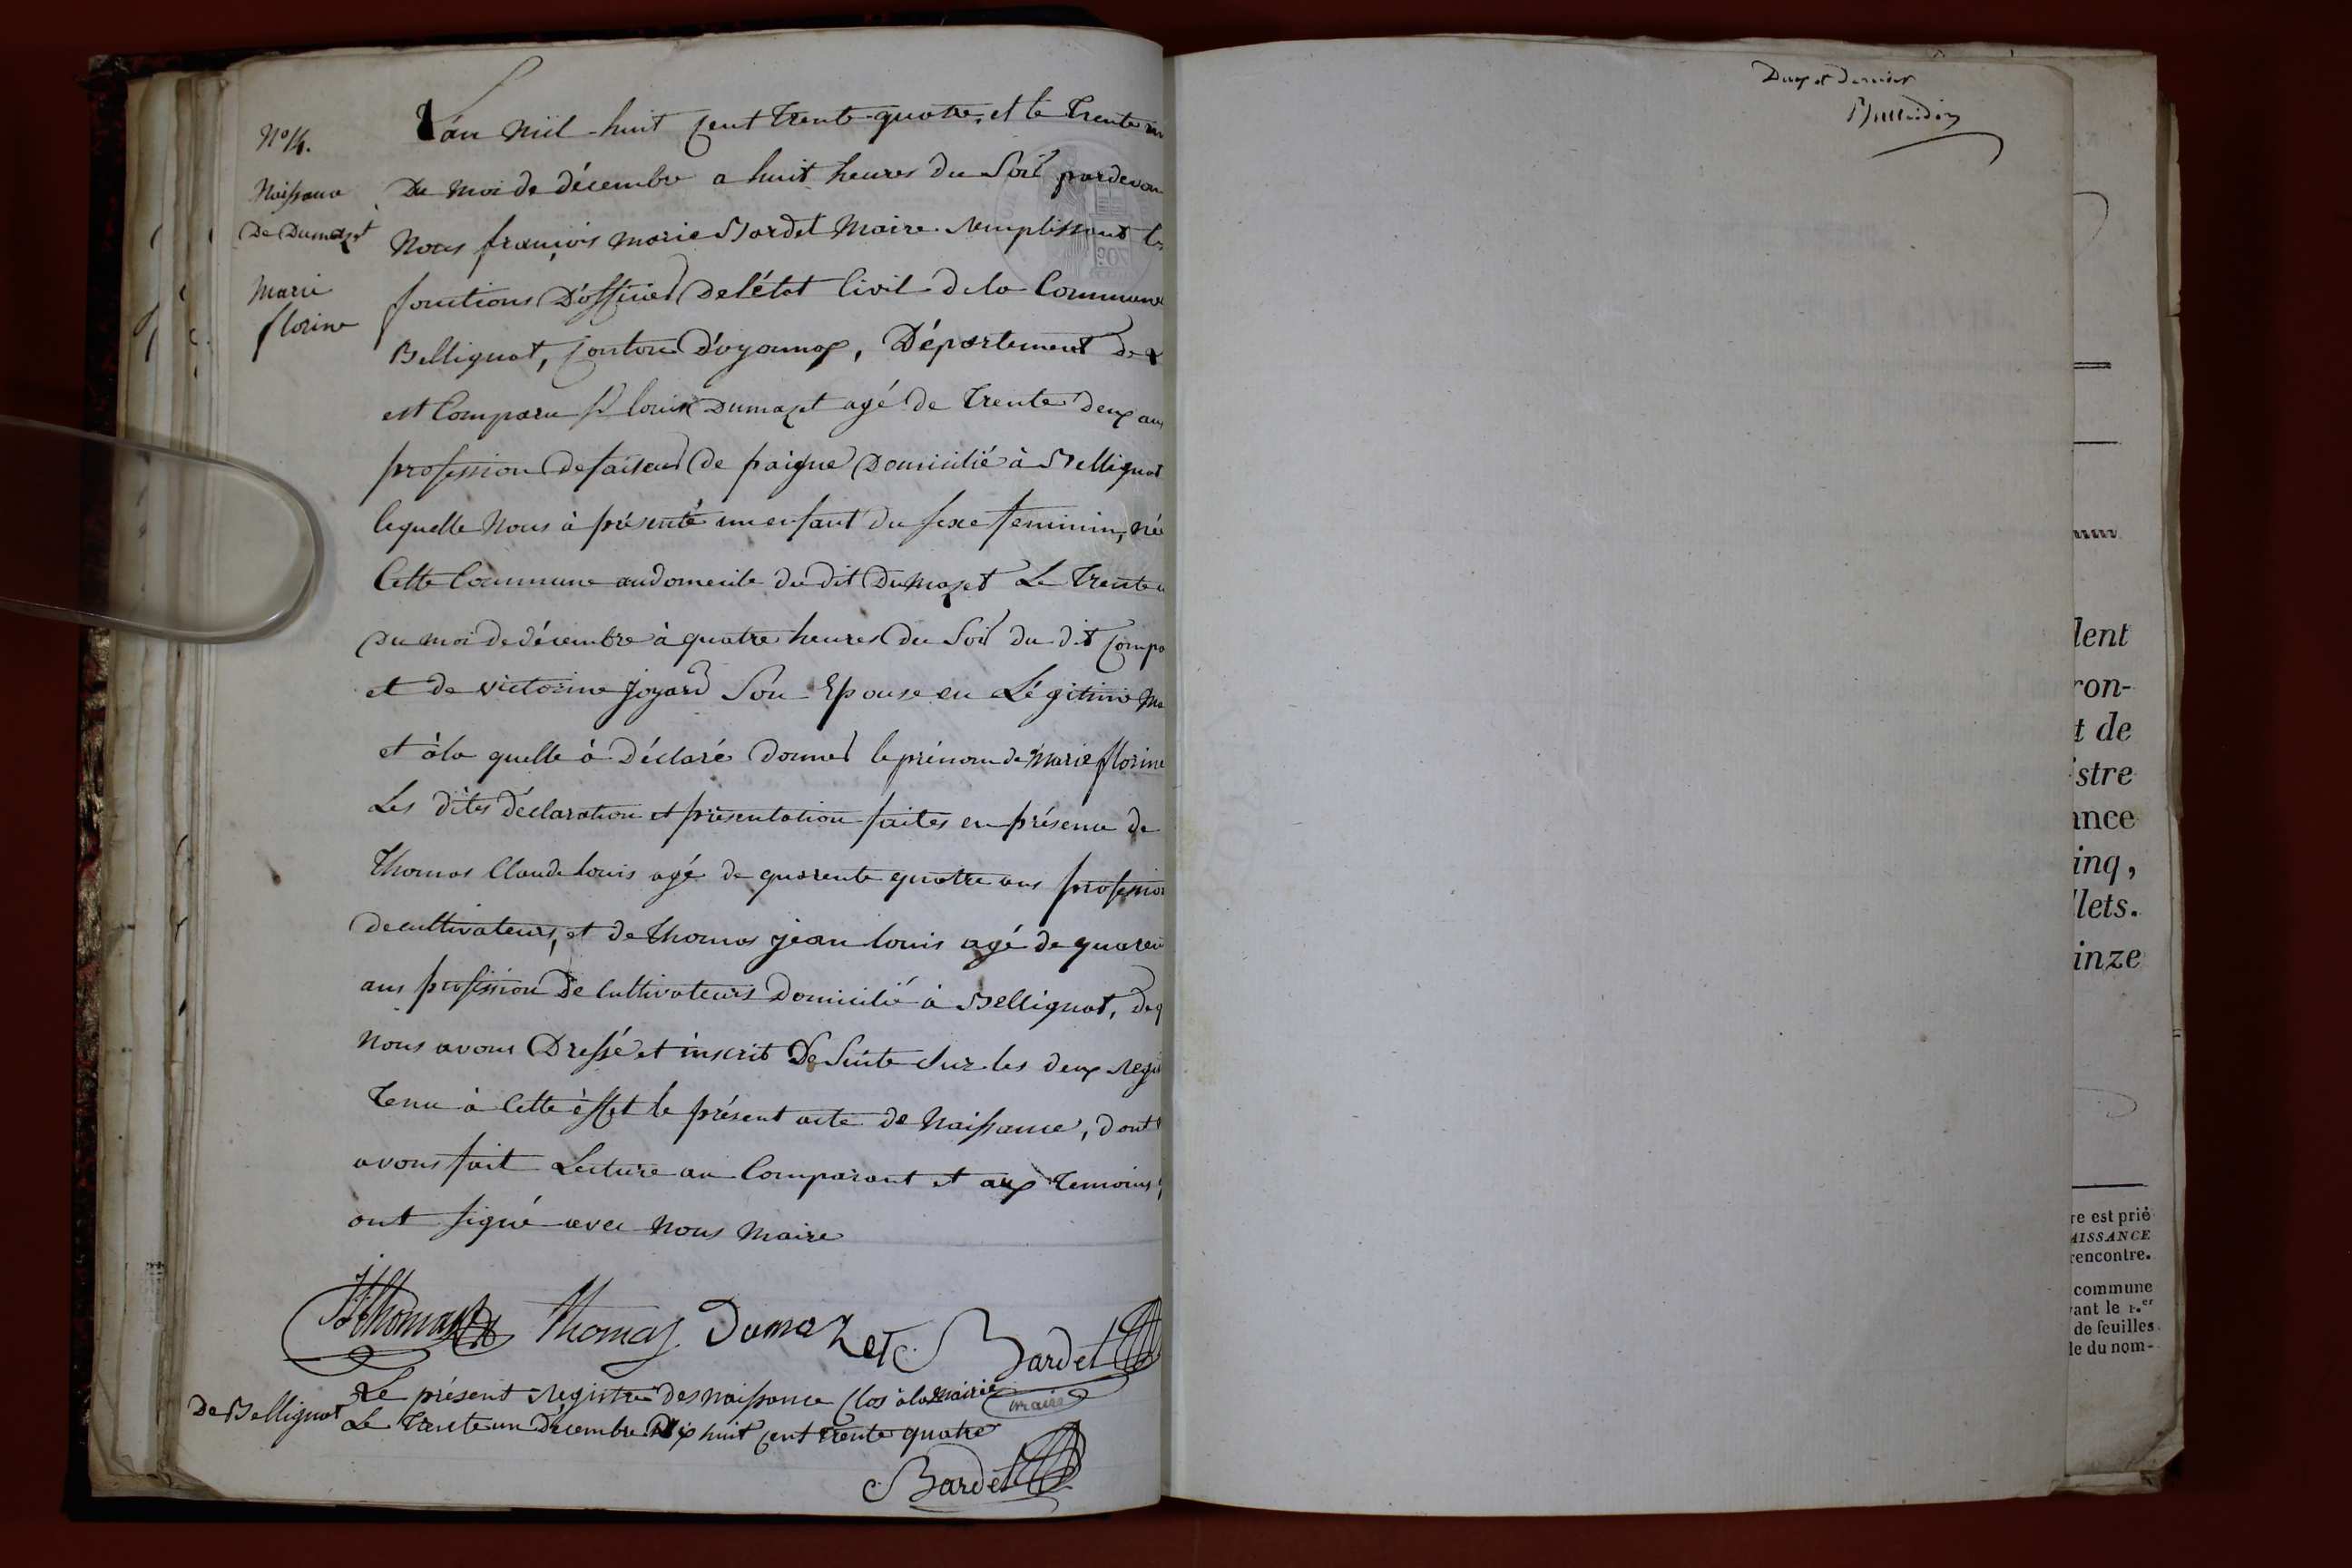 N° 14.
Naissance
De Dumazet
Marie
florine
L'an mil huit cent trente-quatre, et le trente un
Du moi de décembre a huit heures du Soir pardevan
Nous françois marie Bardet Maire remplissant les
fonctions D'officier de l'état Civil de la Commune
Bellignat, Canton d'oyonnax, Département de l
est Comparu Sr louis Dumazet agé de trente deux ans
profession de faiseur de paigne Domicilié à Bellignat
lequelle Nous à présenté un enfant du sexe feminin, née
Cette Commune au domicile du dit Dumazet Le trente u
Du moi de décembre à quatre heures du Soir du dit Compa
et de victorine Joyard Son Epouse en Légitime Ma
et à la quelle à Déclaré donner le prénom de Marie florine
Les dites déclaration et présentation faites en présence de
Thomas Claude louis agé de quarente quatre ans profession
de cultivateurs, et de Thomas jean louis agé de quaren
ans profession de Cultivateurs Domicilié à Bellignat, de q
Nous avons Dressé et inscrit De Suite Sur les deux regi
Tenu à Cette èffet le présent acte de Naissance, dont
avons fait Lecture au Comparant et aux temoins,
ont signé avec Nous Maire
Thomas Thomas Dumazet Bardet
maire
Le présent registre des naissance Clos à la mairie
De Bellignat Le trente un Décembre Dix huit cent trente quatre
Bardet
Deux et dernier
lent
ron-
t de
istre
ance
inq,
llets.
inze
re est prié
AISSANCE
rencontre.
commune
vant le 1.er
de feuilles
le du nom-